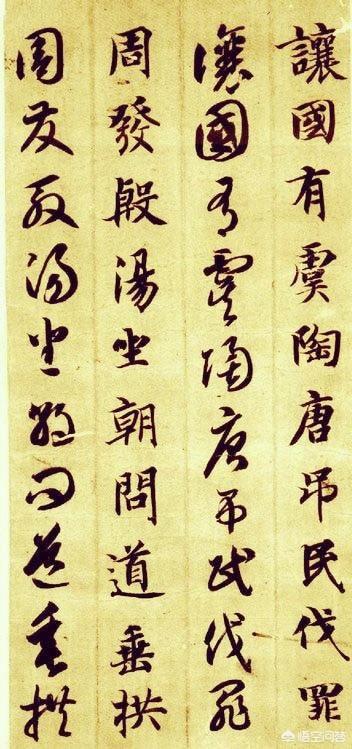 讓國有虞陶唐弔民伐罪
讓國有虞陶唐弔民伐罪
周發殷湯坐朝問道垂拱
周發殷湯坐朝問道垂拱
悟空问答